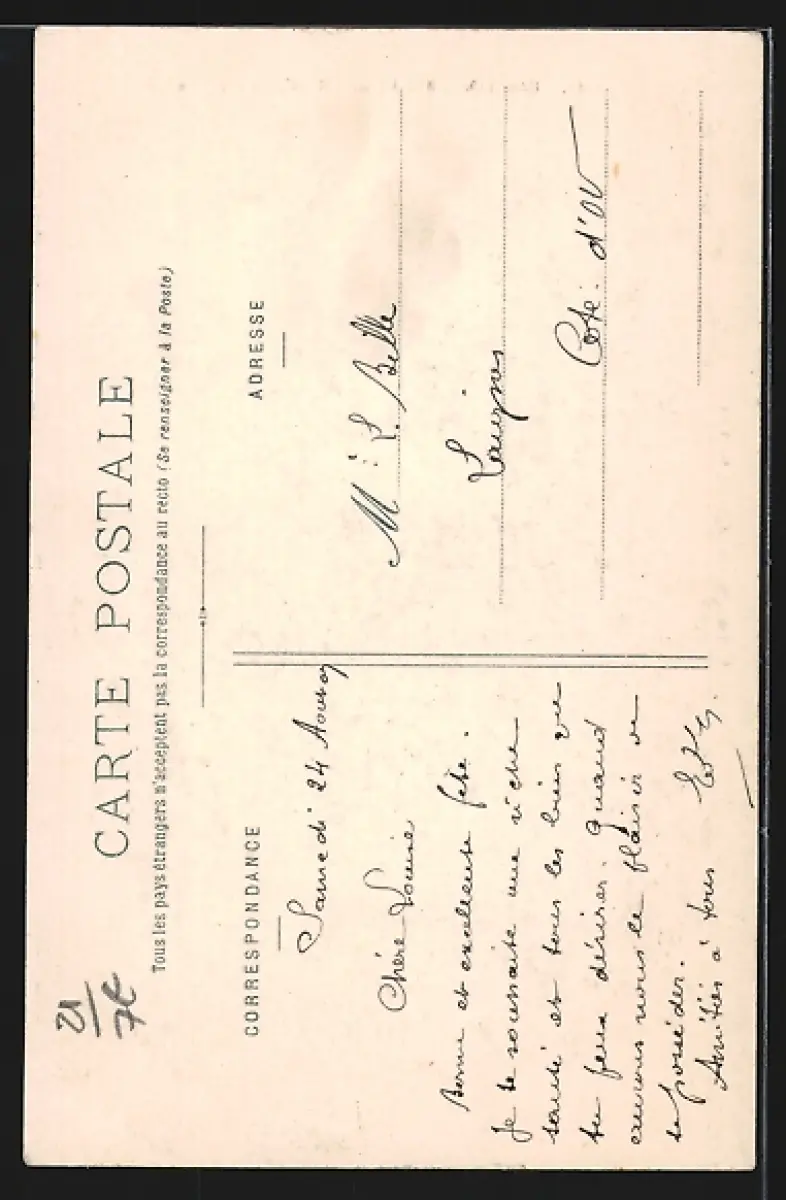 CARTE POSTALE
Tous les pays étrangers n'acceptent pas la correspondance au recto (Se renseigner à la Poste)
CORRESPONDANCE
Samedi 24 Aout
Chère Louise
Bonne et excellente fête.
Je te souhaite une riche
santé et tous les biens que
tu peux désirer. Quand
aurons nous le plaisir de
te posséder.
Amitiés à tous
ADRESSE
M L. Belle
Laignes
Côte-d'Or
21